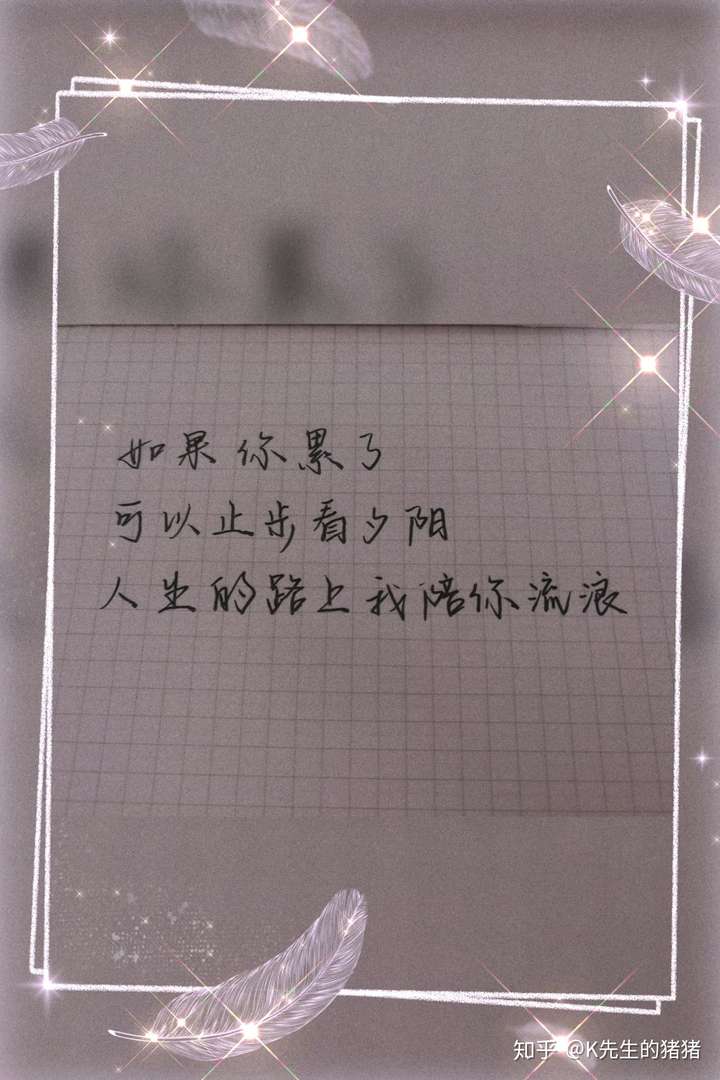 如果你累了
可以止步看夕阳
人生的路上我陪你流浪
知乎 @K先生的猪猪